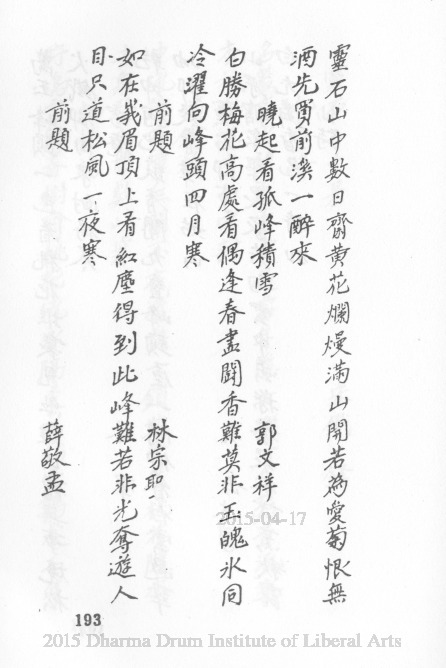 靈石山中數日齋黃花爛熳滿山開若為愛菊恨無
酒先買前溪一醉來
曉起看孤峰積雪 郭文祥
白勝梅花高處看偶逢春盡鬪香難莫非玉魄氷同
冷躍向峰頭四月寒
前題 林宗
如在我眉頂上看紅塵得到此峰難若非光奪遊人
目只道松風一夜寒
前題 薛敬孟
193
2015-04-17
2015 Dharma Drum Institute of Liberal Arts